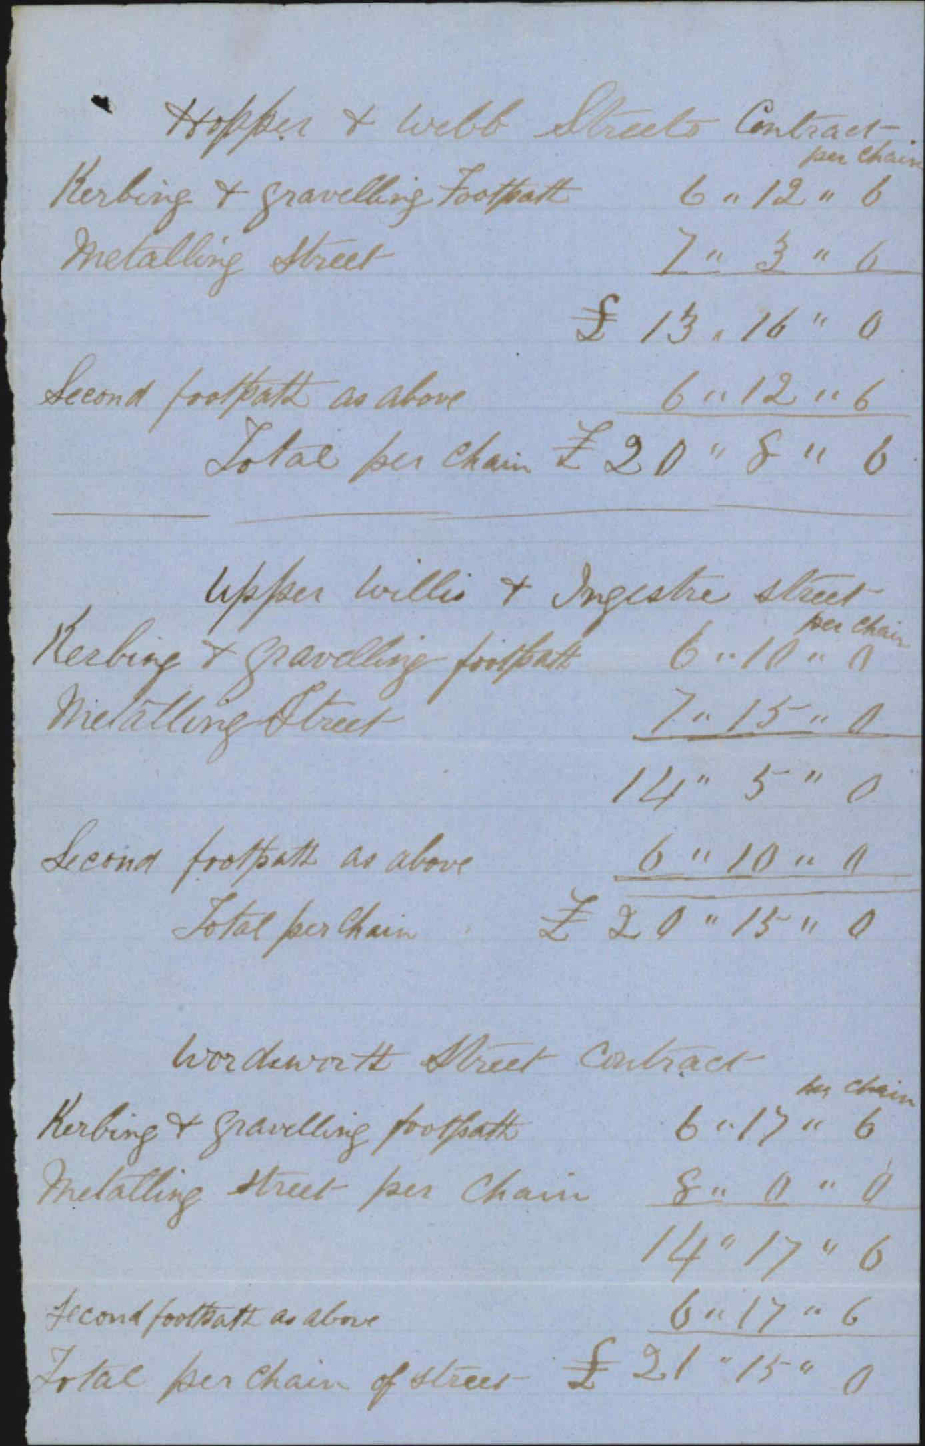 Hopper & Webb Streets Contract
per chain
Kerbing & gravelling Footpath 6 " 12 " 6
Metalling Street 7 " 3 " 6
£ 13 " 16 " 0
Second footpath as above 6 " 12 " 6
Total per chain £ 20 " 8 " 6
Upper Willis & Ingestre street
per chain
Kerbing & gravelling footpath 6 " 10 " 0
Metalling Street 7 " 15 " 0
14 " 5 " 0
Second footpath as above 6 " 10 " 0
Total per Chain £ 20 " 15 " 0
Wordsworth Street Contract
per chain
Kerbing & gravelling footpath 6 " 17 " 6
Metalling street per Chain 8 " 0 " 0
14 " 17 " 6
Second footpath as above 6 " 17 " 6
Total per Chain of street £ 21 " 15 " 0